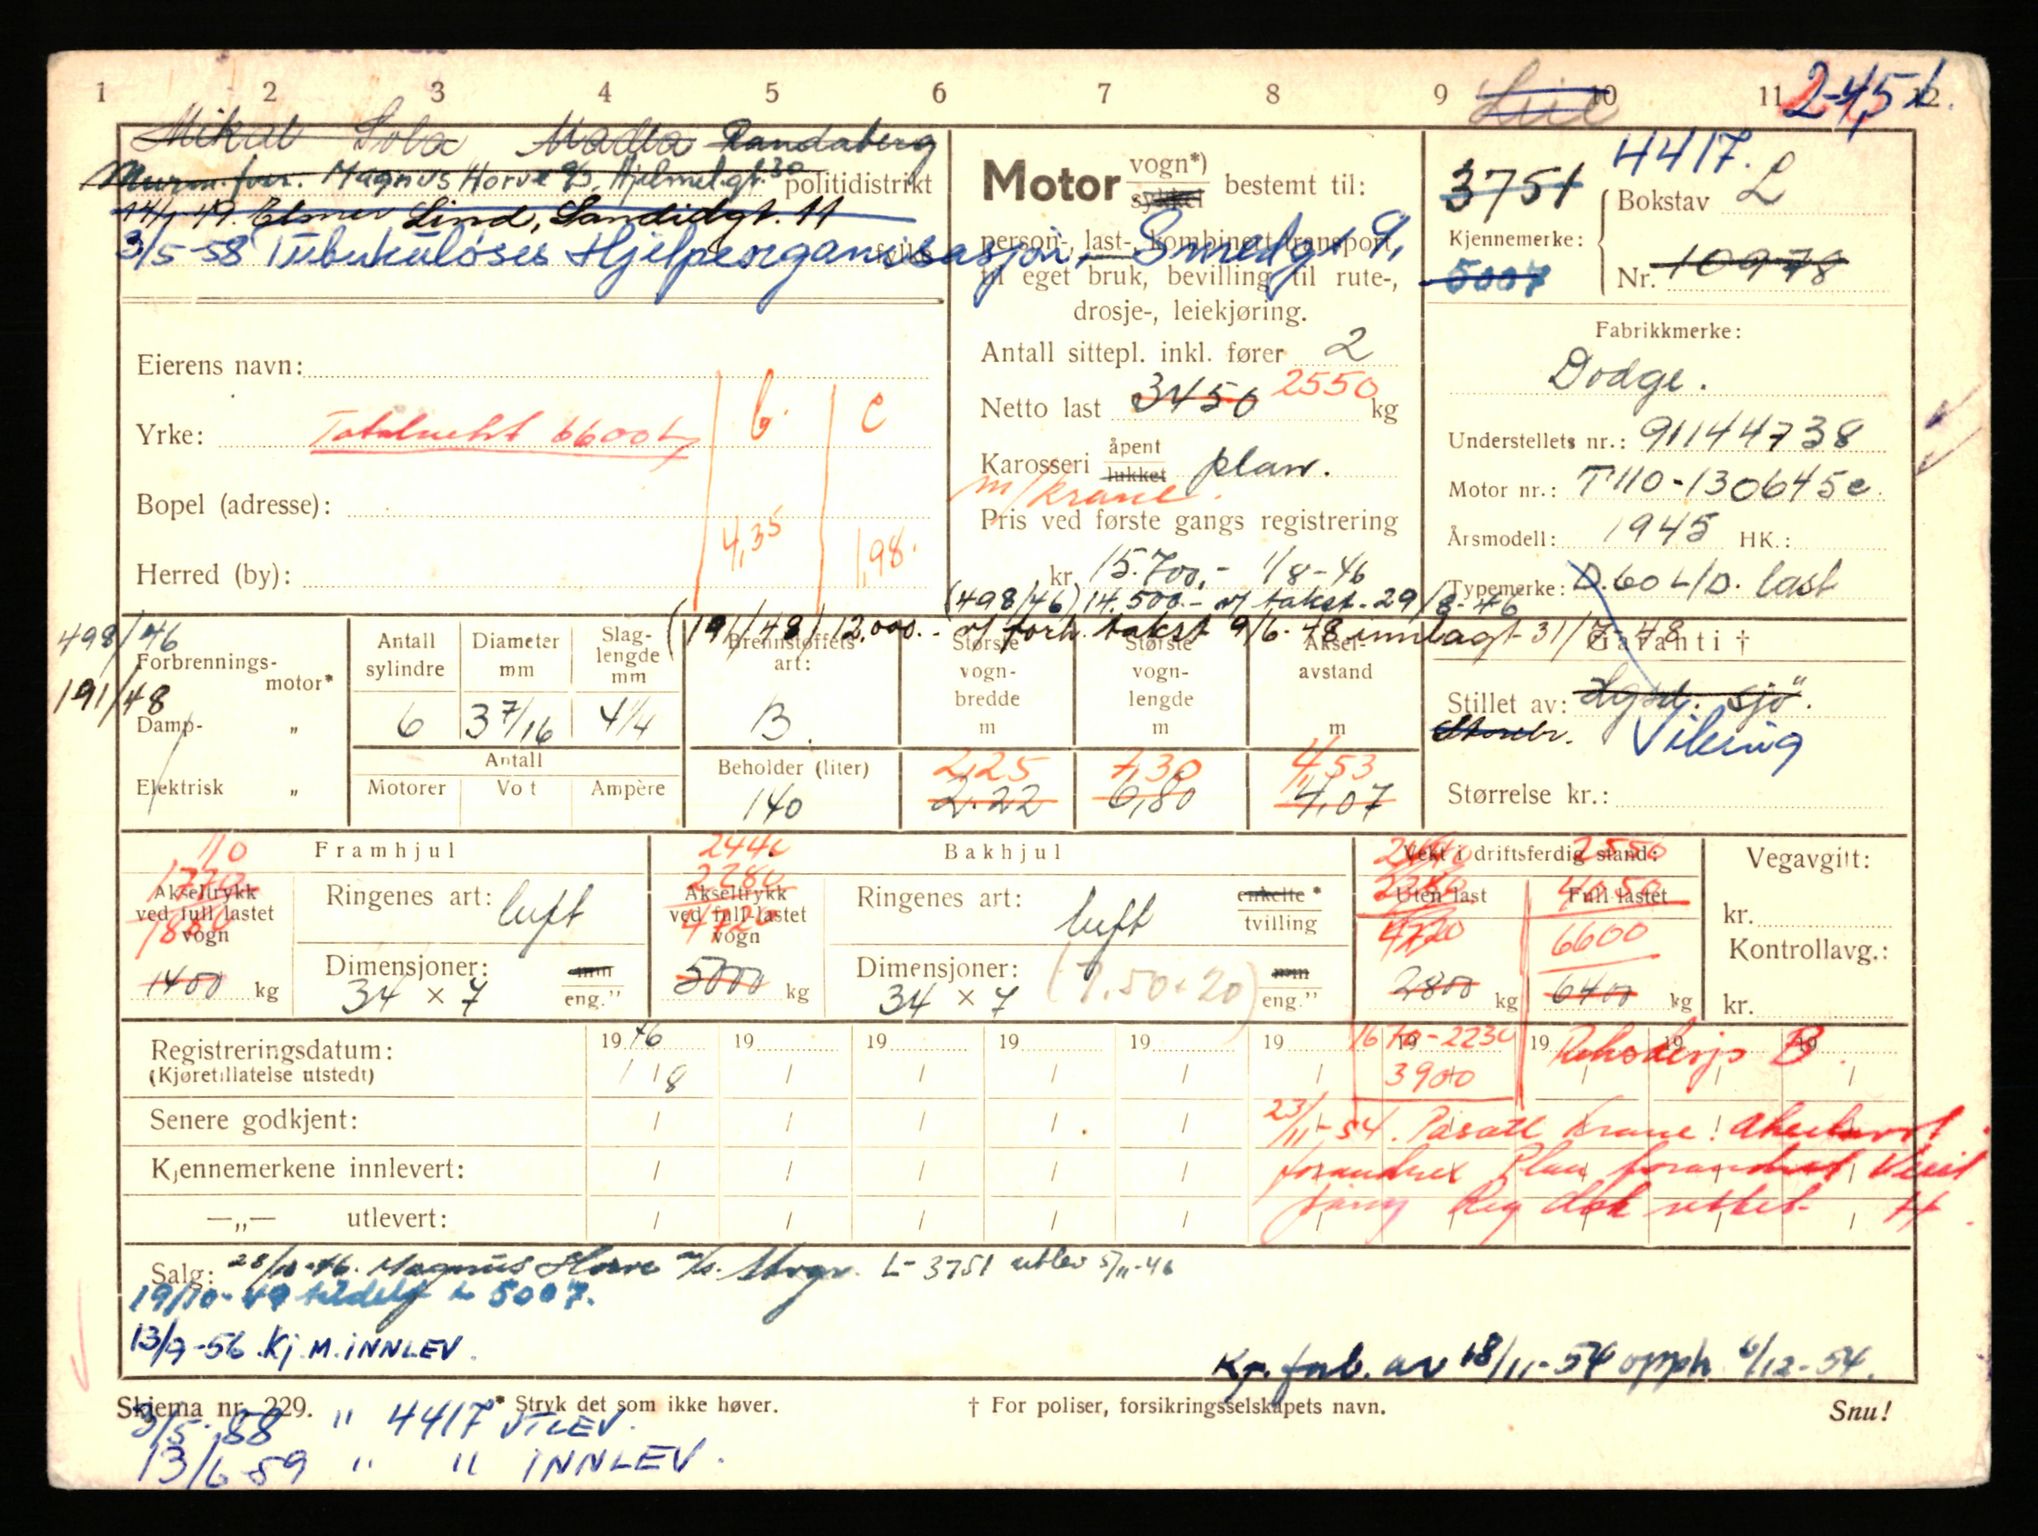 1 2 3 4 5 6 7 8 9 10 11 12
2-4,5 t.
Mikal Sola Madla Randaberg
Murm.for. Magnus Horve Hjelmel.gt. 30 politidistrikt
14/1 49. Elmer Lind, Sandidgt. 11
3/5-58 Tuberkuløses Hjelpeorganisasjon, Smedgt 9,
Eierens navn:
Yrke: Totalvekt 6600 kg
b. c
Bopel (adresse):
4,35 1,98.
Herred (by):
Motor vogn*) sykkel bestemt til:
person-, last-, kombinert transport,
til eget bruk, bevilling til rute-,
drosje-, leiekjøring.
Antall sittepl. inkl. fører 2
Netto last 3450 2550 kg
Karosseri åpent lukket plan.
m/krane.
Pris ved første gangs registrering
kr. 15.700,- 1/8-46
(498/46) 14.500.- v/ takst. 29/8-46
(191/48) 12,000.- v/ forh. takst 9/6-48 innlagt 31/7-48
4417.
3751
Bokstav L
Kjennemerke:
5007
Nr. 10978
Fabrikkmerke:
Dodge.
Understellets nr.: 91144738
Motor nr.: T110-130645c.
Årsmodell: 1945 HK.:
Typemerke: D.60 L/D. last
Garanti †
Stillet av: Viking
Størrelse kr.:
498/46
191/48
Forbrennings- motor*
Damp- „
Elektrisk „
Antall sylindre 6
Diameter mm 3 7/16
Slag- lengde mm 4 1/4
Antall
Motorer Vo t Ampère
Brennstoffets art: B.
Beholder (liter) 140
Største vogn- bredde m 2,25 2.22
Største vogn- lengde m 7,30 6,80
Aksel- avstand m 4,53 4,07
Framhjul
Akseltrykk ved full lastet vogn
1880
1400 kg
Ringenes art: luft
Dimensjoner: mm
34 × 7 eng.”
Bakhjul
2440
2280
Akseltrykk ved full-lastet vogn
4720
5000 kg
Ringenes art: luft enkelte * tvilling
Dimensjoner: mm
34 × 7 (7.50×20) eng.”
Vekt i driftsferdig stand:
2550
Uten last Full lastet
4050
4720 6600
2800 kg 6400 kg
Vegavgift:
kr.
Kontrollavg.:
kr.
Registreringsdatum: 1946 19 19 19 19 19 19 19 19 19
(Kjøretillatelse utstedt) 1/8
2230
3900
B
Senere godkjent:
23/11-54. Påsatt krane!
Kjennemerkene innlevert:
—„— utlevert:
Salg: 28/10-46. Magnus Horve L-3751 utlev 5/11-46
19/10-49 tildelt L 5007.
13/9-56 Kj.M. INNLEV.
Kj. forb. av 18/11-54 opph. 6/12-54.
Skjema nr. 229. * Stryk det som ikke høver. † For poliser, forsikringsselskapets navn. Snu!
3/5-58 " 4417 UTLEV.
13/6 59 " " INNLEV.